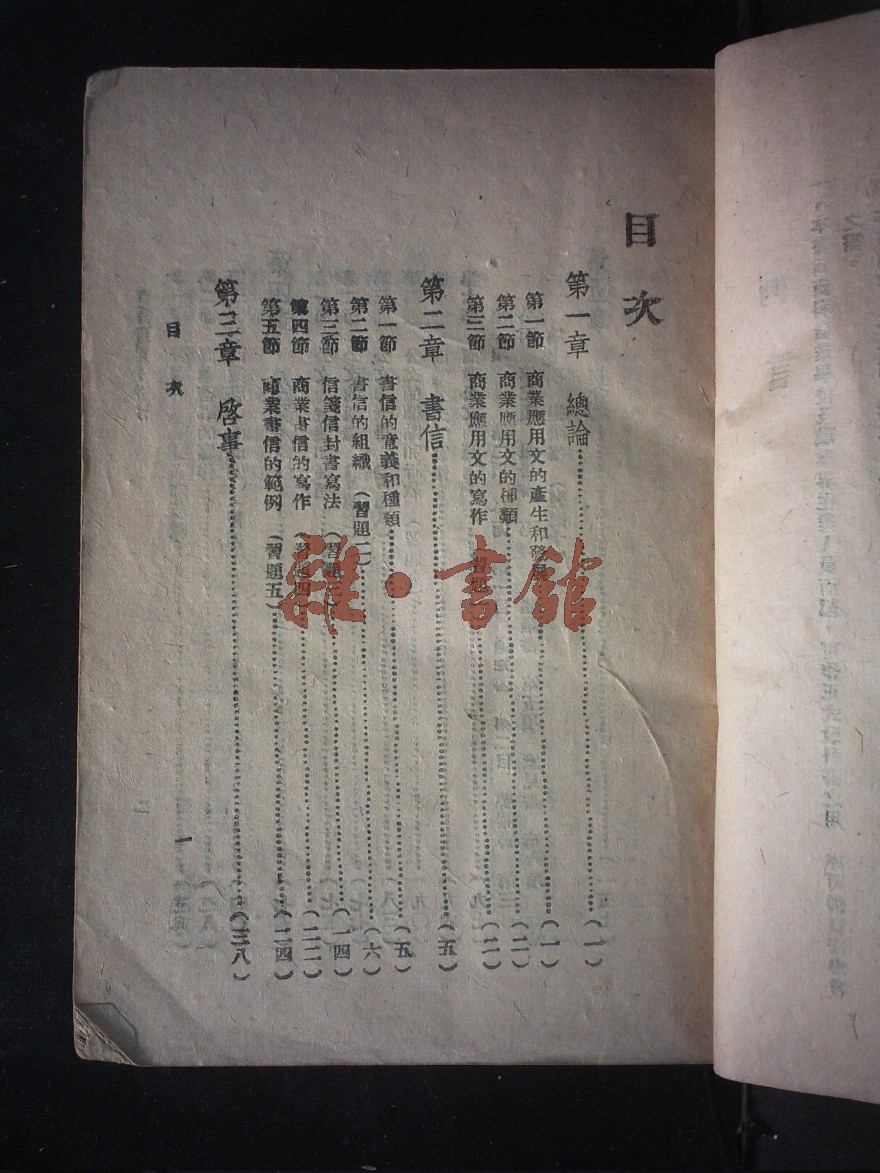 目次
第一章 總論……(一)
第一節 商業應用文的產生和發展……(一)
第二節 商業應用文的種類……(二)
第三節 商業應用文的寫作(習題一)……(二)
第二章 書信……(五)
第一節 書信的意義和種類……(五)
第二節 書信的組織(習題二)……(六)
第三節 信箋信封書寫法(習題三)……(一四)
第四節 商業書信的寫作(習題四)……(二二)
第五節 商業書信的範例(習題五)……(二四)
第三章 啓事……(三八)
目次
一
雜·書館